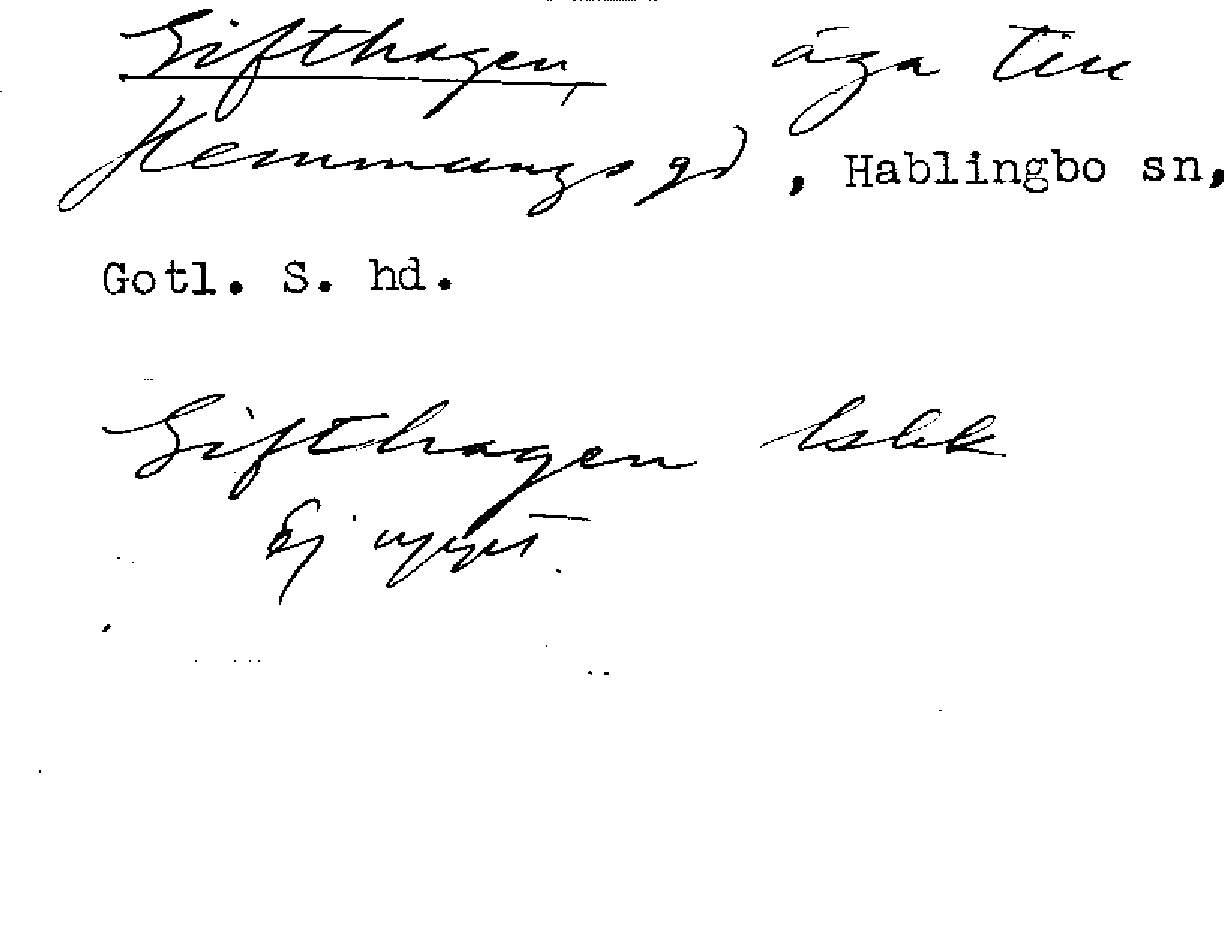 Gifthagen, äga till
Hemmungs gd, Hablingbo sn,
Gotl. S. hd.
Gifthagen lskk
Ej uppt.